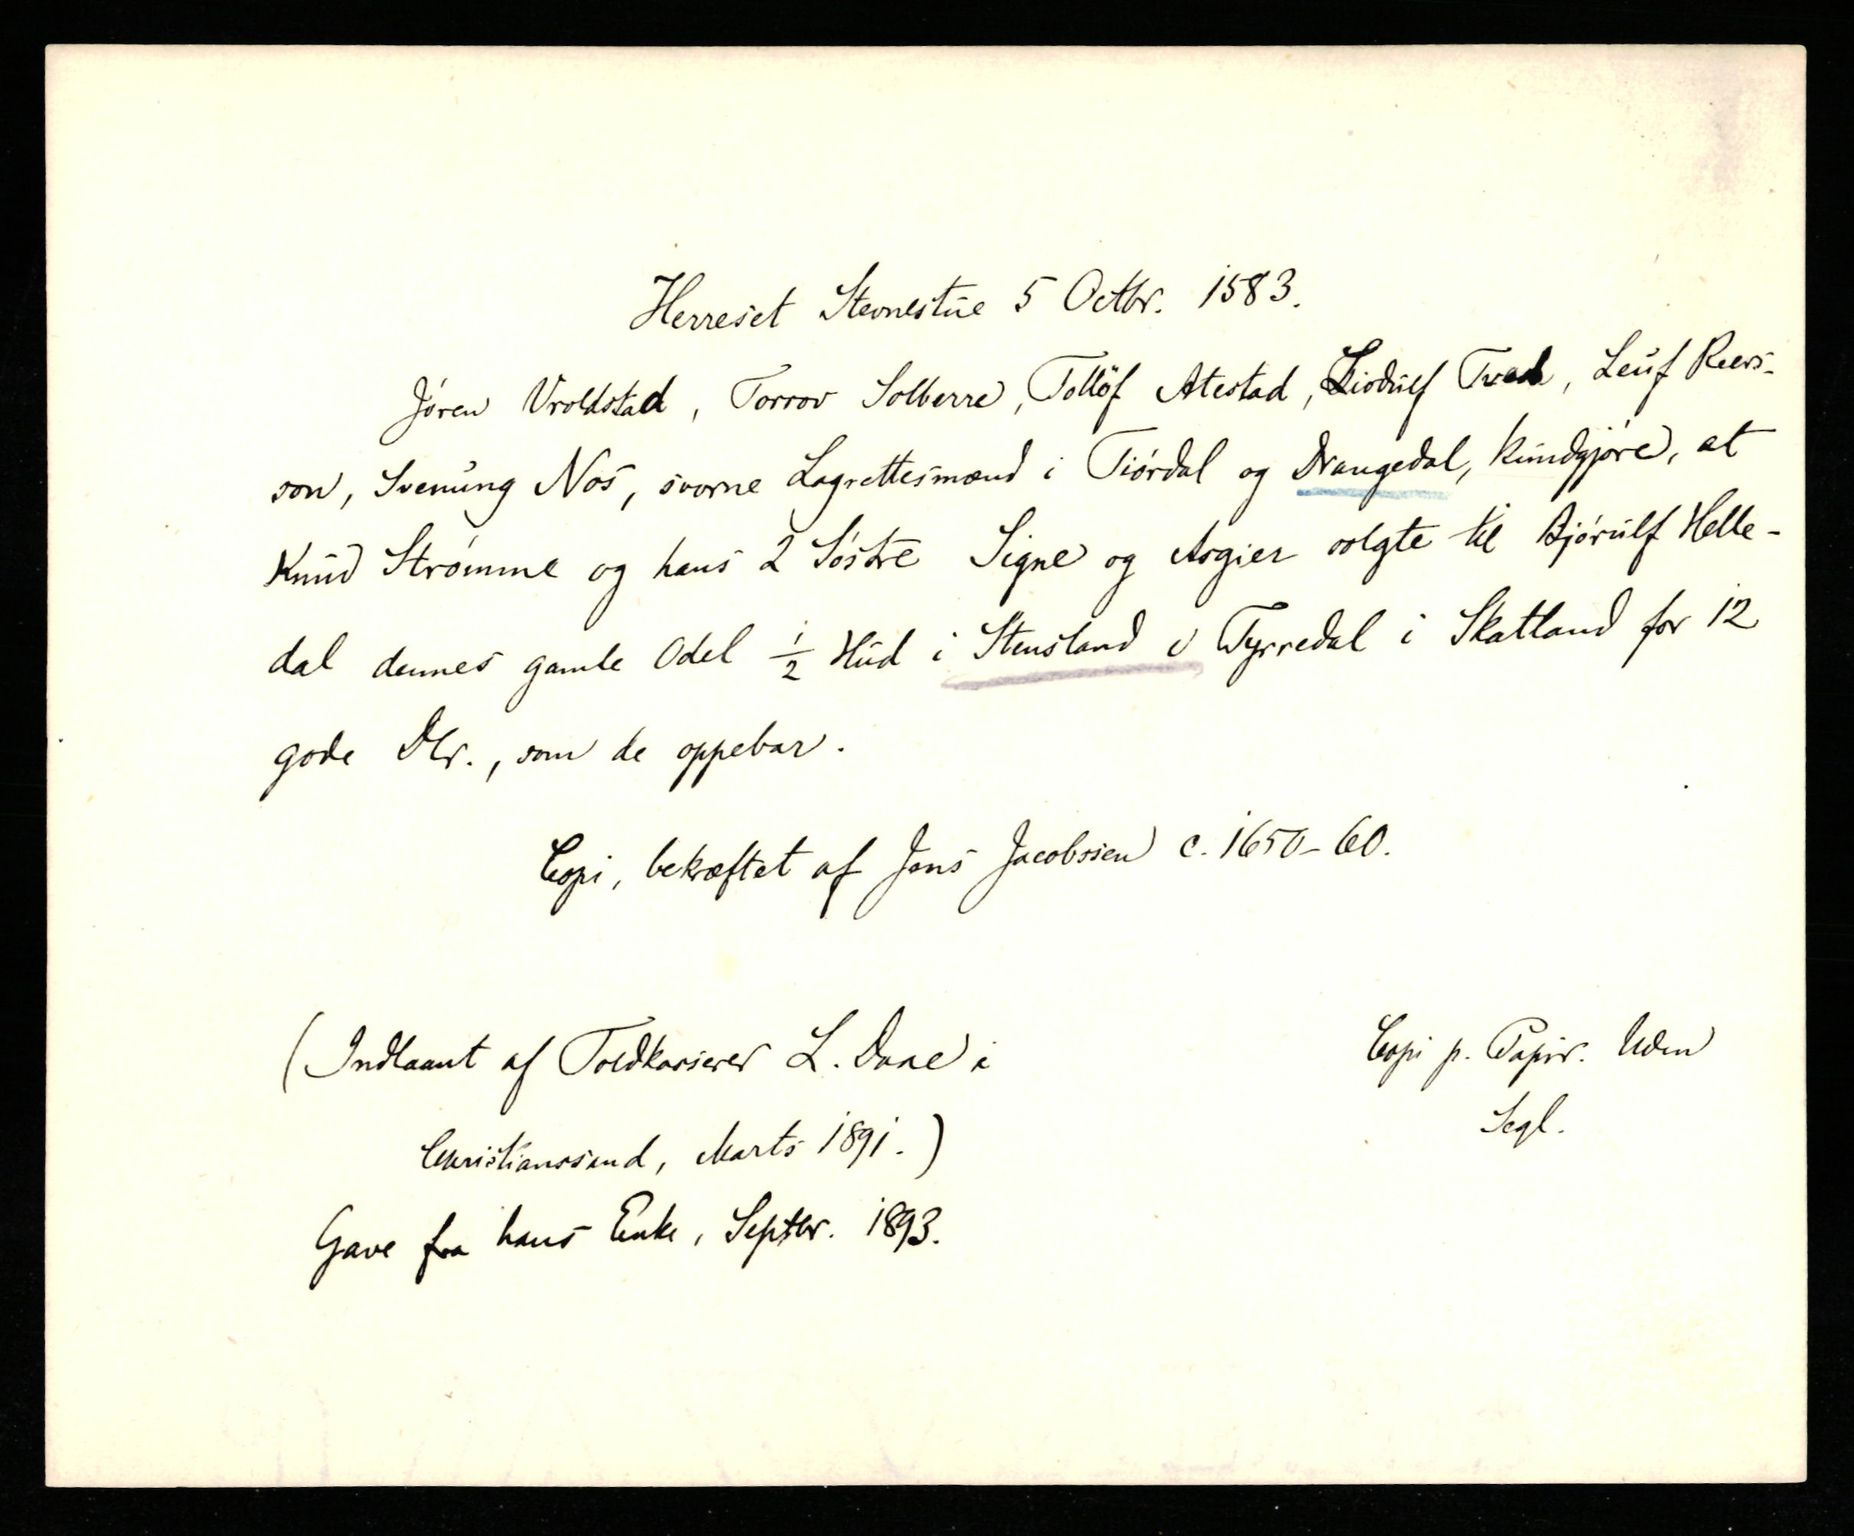 Herreset Stevnestue 5 Octbr. 1583.
Jören Vroldstad, Torrov Solberre, Tollöf Atestad, Liodulf Tvedt, Leuf Reers-
son, Svenung Nos, svorne Lagrettesmænd i Tiórdal og Drangedal, kundgjøre, at
Knud Strømme og hans 2 Søstre Signe og Asgier solgte til Bjørulf Helle-
dal dennes gamle Odel ½ Hud i Stensland i Tyrredal i Skatland for 12
gode Dlr., som de oppebar.
Copi, bekræftet af Jens Jacobssen c. 1650-60.
(Indlaant af Toldkasserer L. Daae i
Christianssand, Marts 1891.)
Gave fra hans Enke, Septbr. 1893.
Copi p. Papir. Uden
Segl.